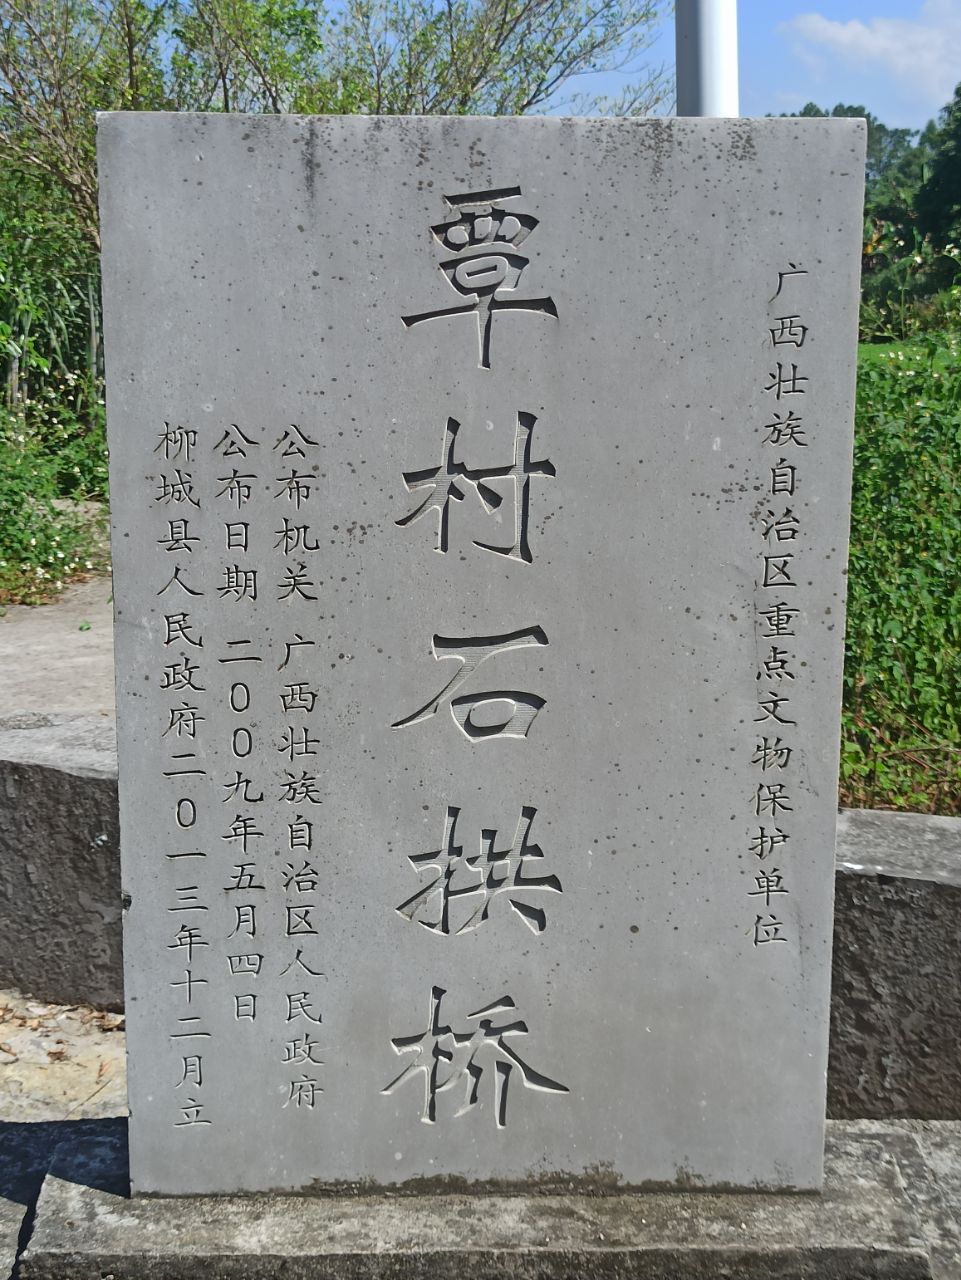 广西壮族自治区重点文物保护单位
覃村石拱桥
公布机关 广西壮族自治区人民政府
公布日期 二〇〇九年五月四日
柳城县人民政府二〇一三年十二月立